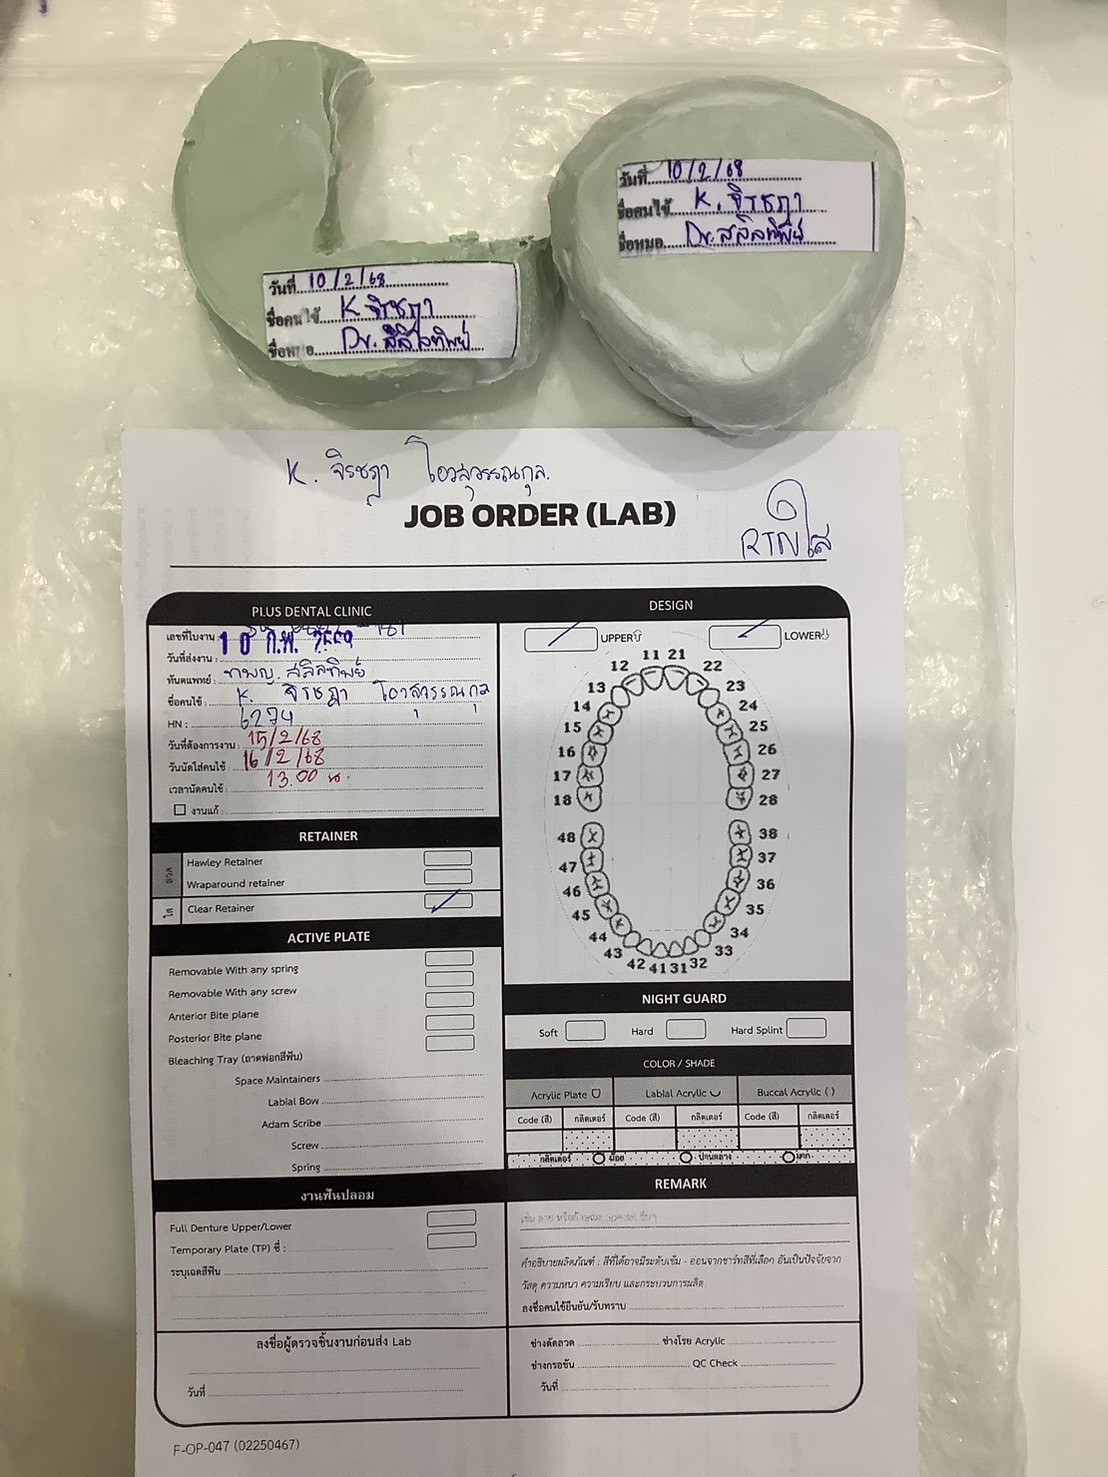 วันที่ 10/2/68
ชื่อคนไข้ K. จิรชฎา
ชื่อหมอ Dr. สลิลทิพย์
วันที่ 10/2/68
ชื่อคนไข้ K จิรชฎา
Dr. สลิลทิพย์
K. จิรชฎา โอวสุวรรณกุล
JOB ORDER (LAB)
RTNใส
PLUS DENTAL CLINIC
เลขที่ใบงาน :
วันที่ส่งงาน : 10 ก.พ.
ทันตแพทย์ : ทพญ. สลิลทิพย์
ชื่อคนไข้ : K. จิรชฎา โอวสุวรรณกุล
HN : 6274
วันที่ต้องการงาน : 15/2/68
วันนัดใส่คนไข้ : 16/2/68
เวลานัดคนไข้ : 13.00 น.
งานแก้ :
RETAINER
ลวด
Hawley Retainer
Wraparound retainer
ใส
Clear Retainer
ACTIVE PLATE
Removable With any spring
Removable With any screw
Anterior Bite plane
Posterior Bite plane
Bleaching Tray (ถาดฟอกสีฟัน)
Space Maintainers
Labial Bow
Adam Scribe
Screw
Spring
งานฟันปลอม
Full Denture Upper/Lower
Temporary Plate (TP) ซี่ :
ระบุเฉดสีฟัน
ลงชื่อผู้ตรวจชิ้นงานก่อนส่ง Lab
วันที่
DESIGN
UPPER LOWER
11 21
12 22
13 23
14 24
15 25
16 26
17 27
18 28
48 38
47 37
46 36
45 35
44 34
43 33
42 41 31 32
NIGHT GUARD
Soft Hard Hard Splint
COLOR / SHADE
Acrylic Plate Labial Acrylic Buccal Acrylic ( )
Code (สี) กลิตเตอร์ Code (สี) กลิตเตอร์ Code (สี) กลิตเตอร์
กลิตเตอร์ น้อย ปานกลาง มาก
REMARK
เช่น ลาย หรือลักษณะ
คำอธิบายผลิตภัณฑ์ : สีที่ได้อาจมีระดับเข้ม - อ่อนจากชาร์ทสีที่เลือก อันเป็นปัจจัยจาก
วัสดุ ความหนา ความเรียบ และกระบวนการผลิต
ลงชื่อคนไข้ยืนยัน/รับทราบ
ช่างดัดลวด ช่างโรย Acrylic
ช่างกรอขัด QC Check
วันที่
F-OP-047 (02250467)